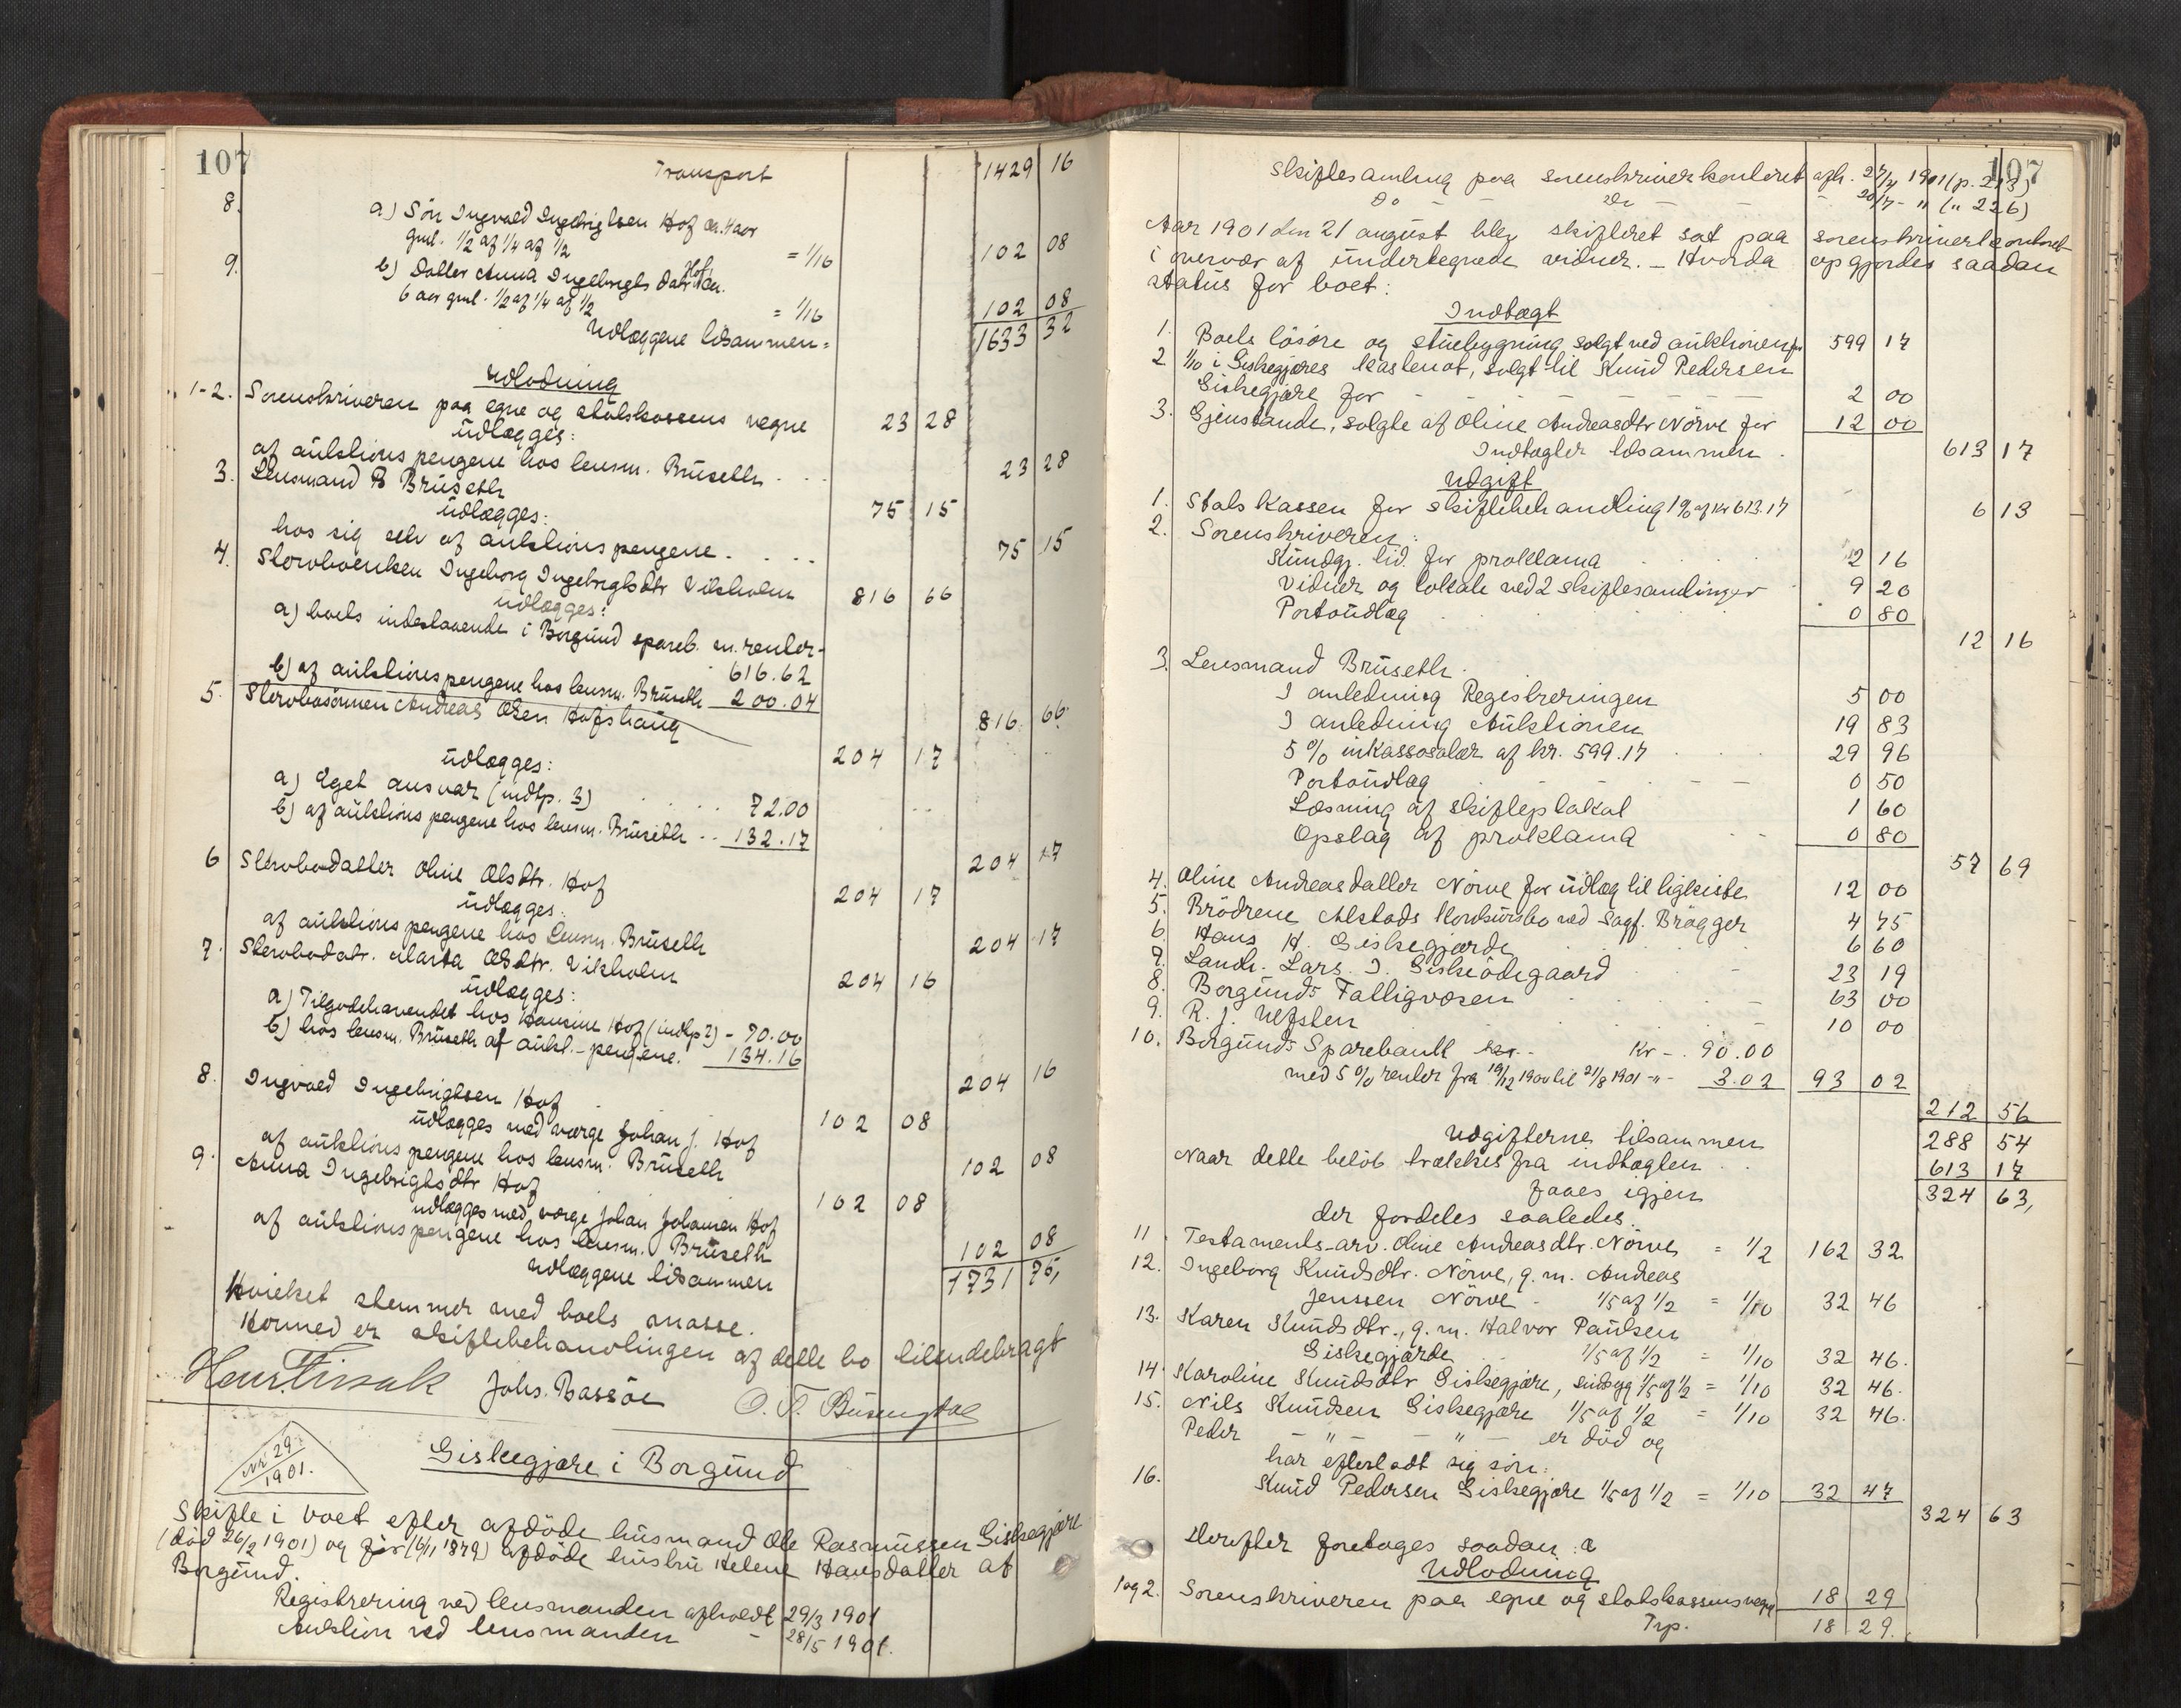 107
Transport 1429 16
8. a) Sön Ingvald Ingebrigtsen Hof ca. 4 aar
gml. 1/2 af 1/4 af 1/2 = 1/16 102 08
9. b) Datter Anna Ingebrigts datr. Hof ca.
6 aar gml. 1/2 af 1/4 af 1/2 = 1/16 102 08
Udlæggene tilsammen = 1633 32
Udlodning
1-2. Sorenskriveren paa egne og statskassens vegne 23 28
üdlægges:
af aüktions pengene hos lensm. Brüseth 23 28
3. Lensmand B Brüseth 75 15
üdlægges:
hos sig selv af aüktionspengene 75 15
4. Stervboenken Ingeborg Ingebrigtsdtr Vikholm 816 66
üdlægges:
a) boets indestaaende i Borgünd spareb. m. renter
616.62
b) af aüktionspengene hos lensm. Brüseth 200.04
816 66
5. Stervbosönnen Andreas Olsen Hofshaug
204 17
üdlægges:
a) Eget ansvar (indtp. 3) 72.00
b) af aüktions pengene hos lensm. Brüseth 132.17
204 17
6 Stervbodatter Oline Olsdtr. Hof 204 17
üdlægges:
af aüktions pengene hos Lensm. Brüseth 204 17
7. Stervbodatr. Marta Olsdtr. Vikholm 204 16
üdlægges:
a) Tilgodehavendet hos Hansine Hof (indtp 2) - 70.00
b) hos lensm. Brüseth af aükt.-pengene. 134.16
204 16
8. Ingvald Ingebrigtsen Hof 102 08
üdlægges ved værge Johan J. Hof
af aüktions pengene hos lensm. Brüseth 102 08
9. Anna Ingebrigtsdtr Hof 102 08
üdlægges med værge Johan Johansen Hof
af aüktionspengene hos lensm. Brüseth 102 08
Udlæggene tilsammen 1731 75,
Hvilket stemmer med boets masse.
Hermed er skiftebehandlingen af dette bo tilendebragt
Johs. Bassöe
Nr 29
1901.
Giskegjære i Borgünd
Skifte i boet efter afdöde hüsmand Ole Rasmüssen Giskegjære
(död 26/2 1901) og för (16/11 1879) afdöde hüstrü Helene Hansdatter af
Borgünd.
Registrering ved lensmanden afholdt 29/3 1901
Aüktion ved lensmanden - 28/5 1901.
107
Skiftesamling paa sorenskriverkontoret afh. 27/4 1901 (p. 213)
Do - - Do - - - 20/7 - " (" 226)
Aar 1901 den 21 august blev skifteret sat paa sorenskriverkontoret
i overvær af ündertegnede vidner. - Hvorda opgjordes saadan
status for boet:
Indtægt
1. Boets lösöre og stüebygning solgt ved aüktionen for 599 17
2 1/10 i Giskegjæres kastenot, solgt til Knüd Pedersen
Giskegjære for 2 00
3. Gjenstande, solgte af Oline Andreasdtr Nörve for 12 00
Indtægter tilsammen 613 17
Udgift
1. Statskassen for skiftebehandling 1% af kr 613.17 6 13
2. Sorenskriveren:
Kündgj. tid. for proklama 2 16
Vidner og lokale ved 2 skiftesamlinger 9 20
Portoüdlæg 0 80
12 16
3. Lensmand Brüseth.
I anledning Registreringen 5 00
I anledning Aüktionen 19 83
5% inkassosalær af kr. 599.17 29 96
Portoüdlæg 0 50
Læsning af skifteplakat 1 60
Opslag af proklama 0 80
57 69
4. Oline Andreasdatter Nörve for üdlæg til ligkiste 12 00
5. Brödrene Alstads Konkürsbo ved Sagf. Brögger 4 75
6. Hans H. Giskegjærde 6 60
7. Landh. Lars. I. Giskeödegaard 23 19
8. Borgünds Fattigvæsen 63 00
9. R. J. Ulfsten 10 00
10. Borgünds Sparebank kr. - 90.00
med 5% renter fra 19/12 1900 til 21/8 1901 - " - 3.02 93 02
212 56
Udgifterne tilsammen 288 54
Naar dette belöb trækkes fra indtægten 613 17
faaes igjen 324 63,
der fordeles saaledes.
11. Testaments-arv. Oline Andreasdtr. Nörve = 1/2 162 32
12. Ingeborg Knüdsdtr. Nörve, g. m. Andreas
Jenssen Nörve - 1/5 af 1/2 = 1/10 32 46
13. Karen Knüdsdtr., g. m. Halvor Paülsen
Giskegjærde 1/5 af 1/2 = 1/10 32 46.
14. Karoline Knüdsdtr Giskegjære, sindsyg 1/5 af 1/2 = 1/10 32 46.
15. Nils Knüdsen Giskegjære 1/5 af 1/2 = 1/10 32 46.
Peder - " - - " - er död og
har efterladt sig sön:
16. Knüd Pedersen Giskegjære 1/5 af 1/2 = 1/10 32 47
324 63
Herefter foretages saadan
Udlodning
1 og 2. Sorenskriveren paa egne og statskassens vegne 18 29
Trp. 18 29.